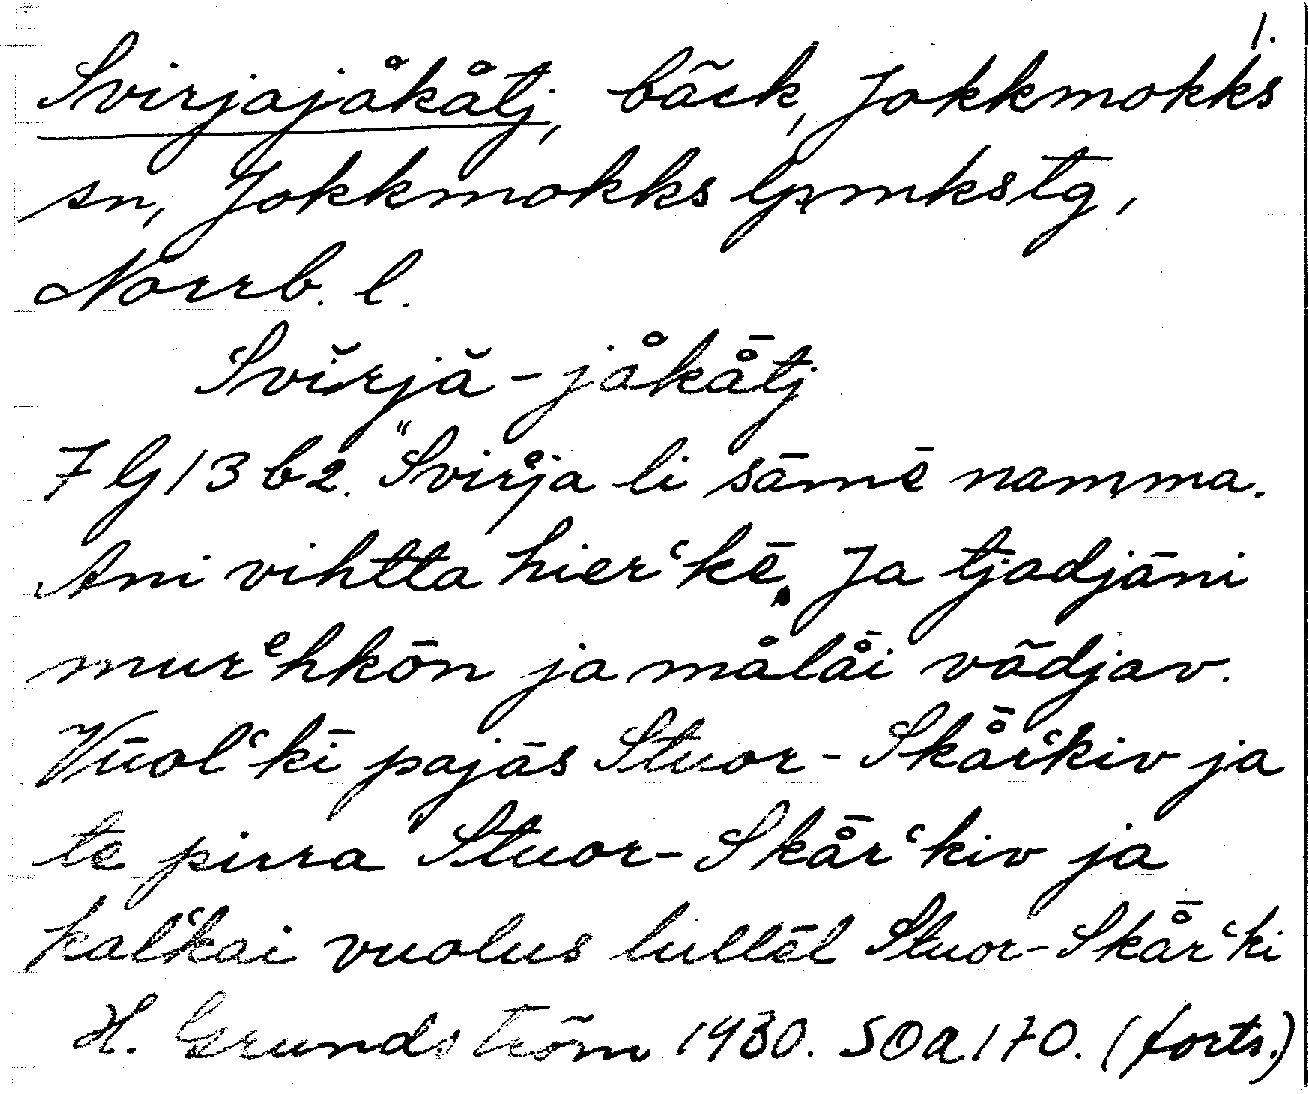 1.
Svirjajåkåtj, bäck, Jokkmokks
sn, Jokkmokks lpmkstg,
Norrb. l.
Svĭrjă-jåkå̄tj
7 lg 13 b2. "Svirja li sāmē namma.
Ani vihtta hierʻkē. Ja tjadjāni
murᵉhkōn ja målåi vādjav.
Vūolʻkī pajās Stuor-Skå̄rʻkiv ja
te pirra Stuor-Skå̄rʻkiv ja
kalʻkai vuolus lullēl Stuor-Skå̄rʻki
H. Grundström 1930. SOA 170. (forts.)